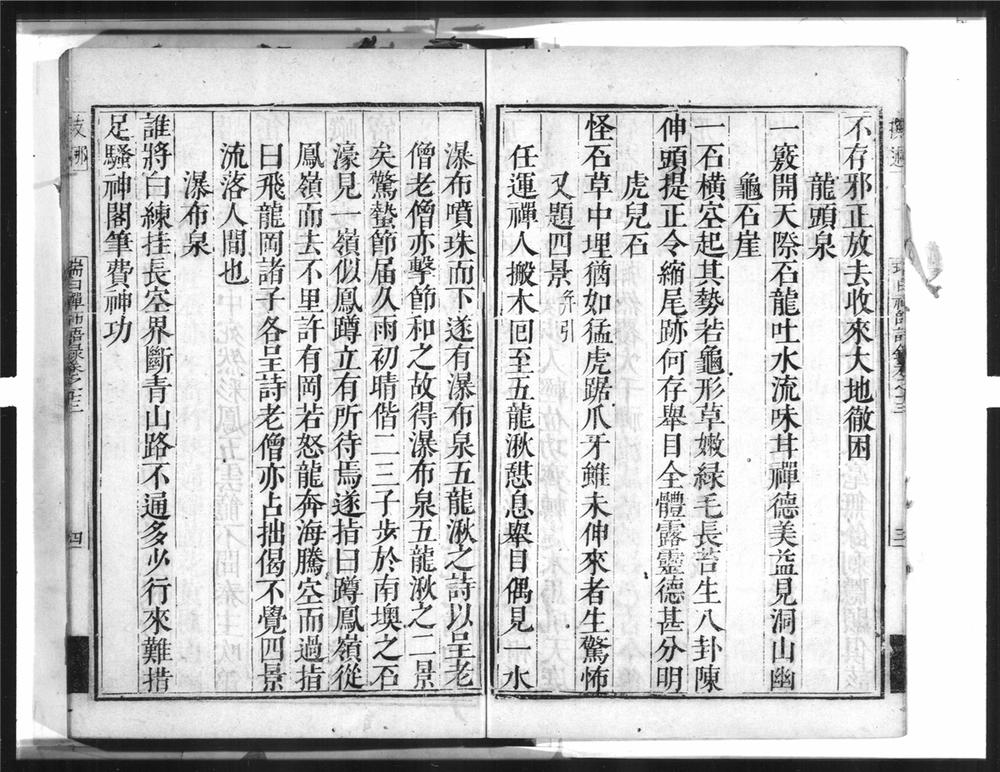 不存邪正放去收來大地徹困
龍頭泉
一竅開天際石龍吐水流味甘禪德美益見洞山幽
龜石崖
一石橫空起其勢若龜形草嫩綠毛長苔生八卦陳
伸頭提正令縮尾跡何存舉目全體露靈德甚分明
虎兒石
怪石草中埋猶如猛虎踞爪牙雖未伸來者生驚怖
又題四景并引
任運禪人搬木回至五龍湫憇息舉目偶見一水
瀑布噴珠而下遂有瀑布泉五龍湫之詩以呈老
僧老僧亦擊節和之故得瀑布泉五龍湫之二景
矣驚蟄節届久雨初晴偕二三子步於南墺之石
濠見一嶺似鳳蹲立有所待焉遂指曰蹲鳳嶺從
鳳嶺而去不里許有岡若怒龍奔海騰空而過指
曰飛龍岡諸子各呈詩老僧亦占拙偈不覺四景
流落人間也
瀑布泉
誰將白練挂長空界斷青山路不通多少行來難措
足騷神閣筆費神功
支那
瑞白禪師語錄卷之十三
四